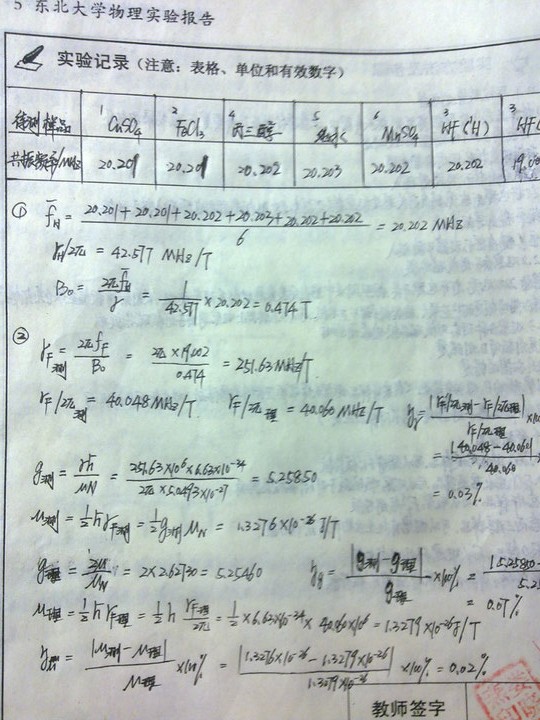 5 东北大学物理实验报告
实验记录（注意：表格、单位和有效数字）
待测样品 1 CuSO₄ 2 FeCl₃ 4 丙三醇 5 纯水 6 MnSO₄ 3 HF(¹H) 3 HF(
共振频率/MHz 20.201 20.201 20.202 20.203 20.202 20.202 19.00
① f̄H = (20.201+20.201+20.202+20.203+20.202+20.202)/6 = 20.202 MHz
γH/2π = 42.577 MHz/T
B₀ = 2πf̄H/γ = 1/42.577 × 20.202 = 0.474 T
② γF测 = 2πfF/B₀ = 2π×19.002/0.474 = 251.63 MHz/T
γF/2π测 = 40.048 MHz/T γF/2π理 = 40.060 MHz/T ηγ = |γF/2π测 - γF/2π理|/γF/2π理 ×10
= |40.048-40.060|/40.060
= 0.03%
g测 = γħ/μN = 251.63×10⁶×6.63×10⁻³⁴/2π×5.0493×10⁻²⁷ = 5.25850
μ测 = ½ħγF测 = ½g测μN = 1.3276×10⁻²⁶ J/T
g理 = 2μ/μN = 2×2.62730 = 5.25460 ηg = |g测-g理|/g理 ×100% = |5.25850-5.25
= 0.07%
μ理 = ½ħγF理 = ½h γF理/2π = ½×6.63×10⁻³⁴×40.060×10⁶ = 1.3279×10⁻²⁶ J/T
ημ = |μ测-μ理|/μ理 ×100% = |1.3276×10⁻²⁶-1.3279×10⁻²⁶|/1.3279×10⁻²⁶ ×100% = 0.02%
教师签字